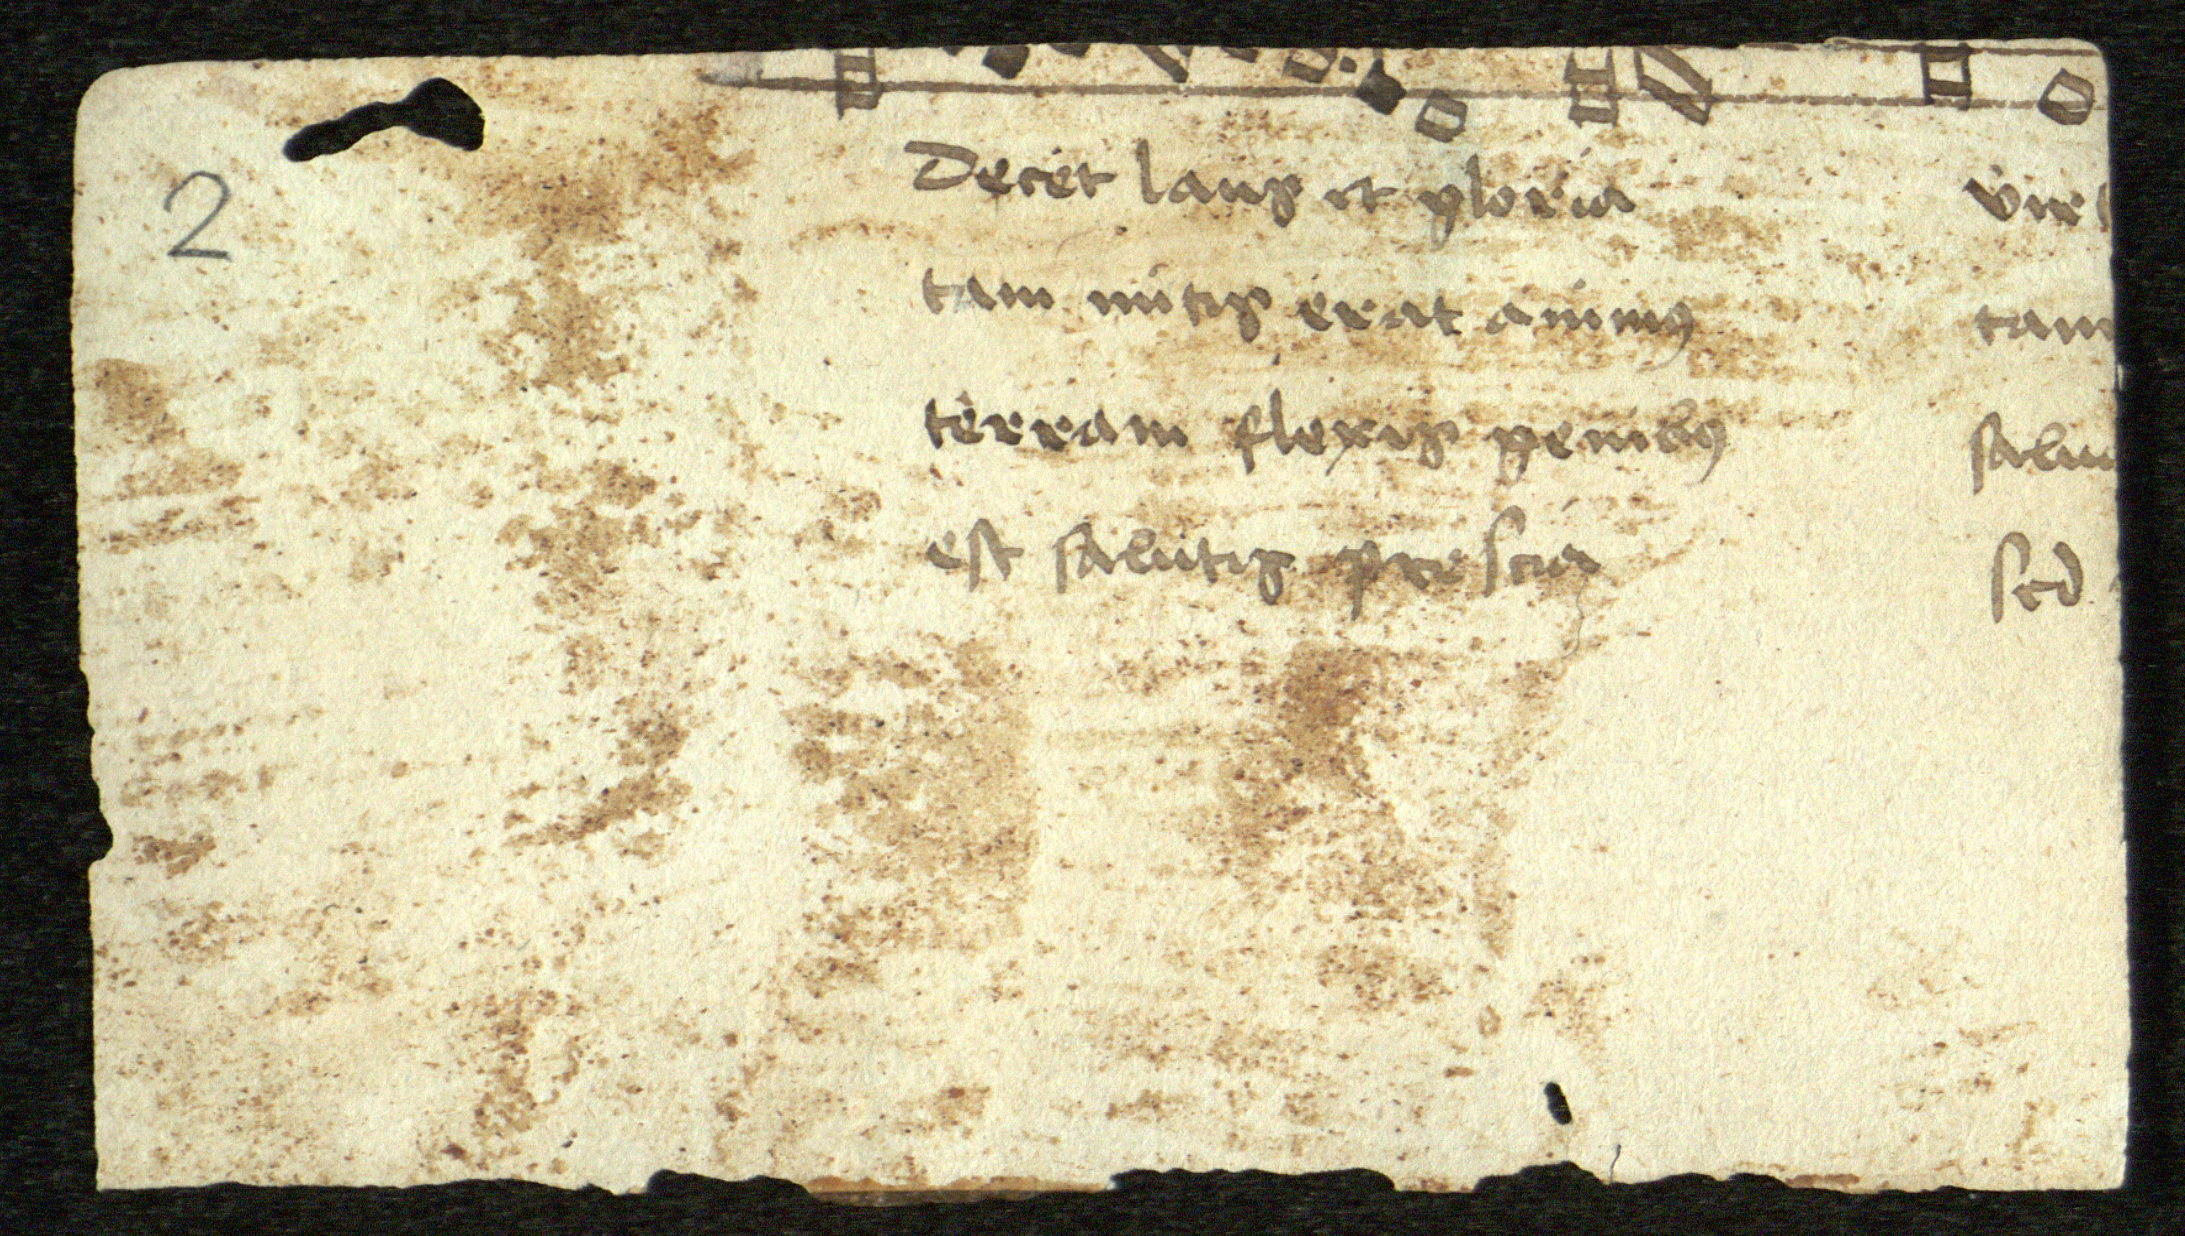 2
Decet laus et gloria
tam mitis erat animus
terram flexis genibus
est salutis prescia
tam
sed